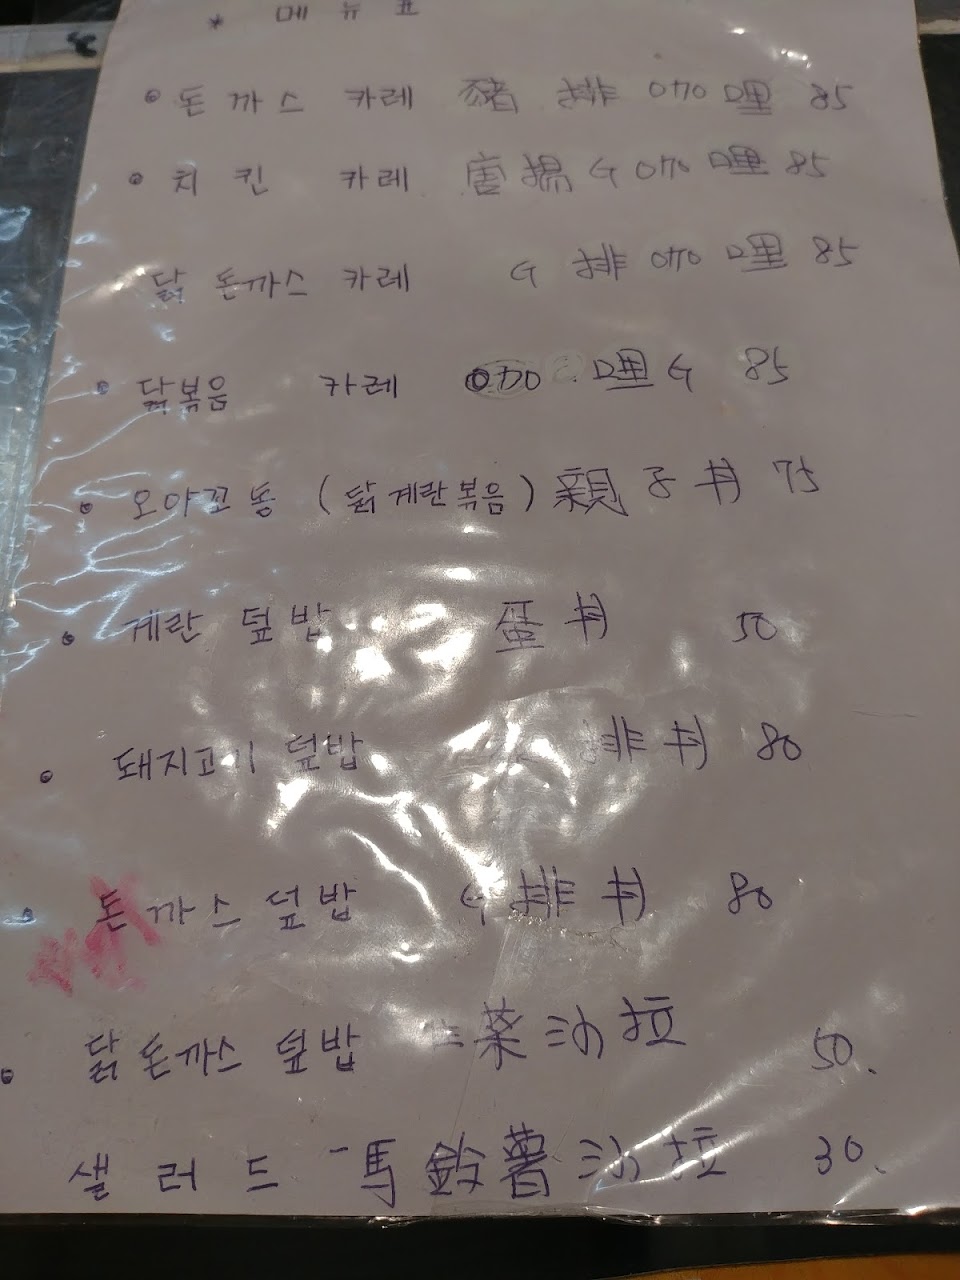 * 메뉴표
• 돈까스 카레 豬排咖哩 85
• 치킨 카레 唐揚G咖哩 85
닭돈까스 카레 G排咖哩 85
• 닭볶음 카레 咖哩G 85
• 오야꼬동 (닭계란볶음) 親子丼 75
• 계란 덮밥 蛋丼 50
• 돼지고기 덮밥 排丼 80
• 돈까스 덮밥 G排丼 80
• 닭돈까스 덮밥 菜沙拉 50.
샐러드 馬鈴薯沙拉 30.